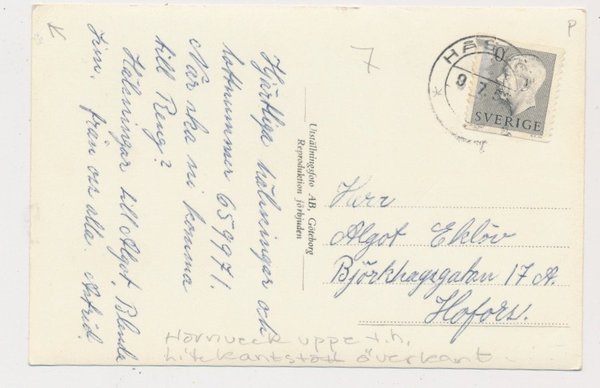 K
P
7
HAS
9.7.5
SVERIGE
Hjärtliga hälsningar och
lottnummer 659971.
När ska ni komma
till Reng?
Hälsningar till Algot, Blenda
från oss alla. Astrid.
Utställningsfoto AB, Göteborg
Reproduktion förbjuden
Herr
Algot Eklöv
Björkhagsgatan 17 A.
Hofors.
Hörnveck uppe t.h.
Lite kantstött överkant